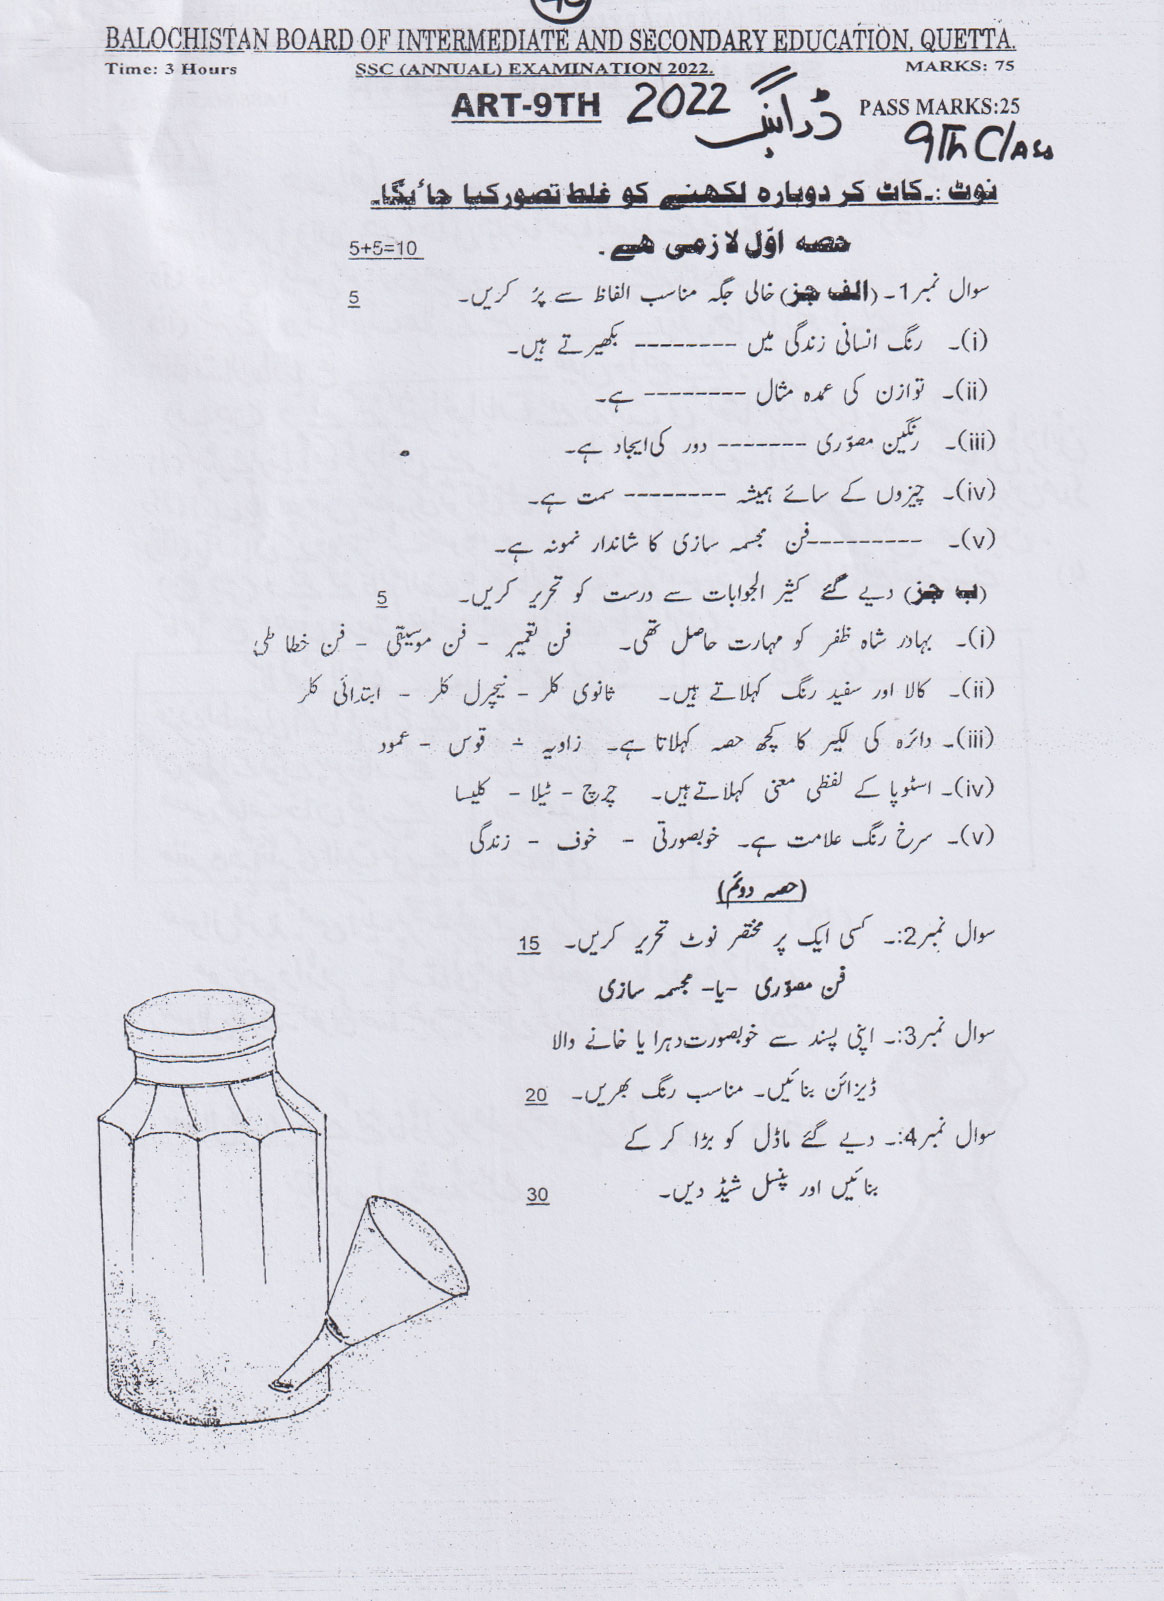 BALOCHISTAN BOARD OF INTERMEDIATE AND SECONDARY EDUCATION, QUETTA.
Time: 3 Hours SSC (ANNUAL) EXAMINATION 2022. MARKS: 75
ART-9TH 2022 ڈرائنگ PASS MARKS:25
9Th Class
نوٹ :۔ کاٹ کر دوبارہ لکھنے کو غلط تصور کیا جائیگا۔
حصہ اوّل لازمی ھے۔ 5+5=10
سوال نمبر1۔ (الف جز) خالی جگہ مناسب الفاظ سے پرُ کریں۔ 5
(i)۔ رنگ انسانی زندگی میں -------- بکھیرتے ہیں۔
(ii)۔ توازن کی عمدہ مثال -------- ہے۔
(iii)۔ رنگین مصوّری ------- دور کی ایجاد ہے۔
(iv)۔ چیزوں کے سائے ہمیشہ -------- سمت ہے۔
(v)۔ ---------فن مجسمہ سازی کا شاندار نمونہ ہے۔
(ب جز) دیے گئے کثیر الجوابات سے درست کو تحریر کریں۔ 5
(i)۔ بہادر شاہ ظفر کو مہارت حاصل تھی۔ فن تعمیر - فن موسیقی - فن خطاطی
(ii)۔ کالا اور سفید رنگ کہلاتے ہیں۔ ثانوی کلر - نیچرل کلر - ابتدائی کلر
(iii)۔ دائرہ کی لکیر کا کچھ حصہ کہلاتا ہے۔ زاویہ - قوس - عمود
(iv)۔ اسٹوپا کے لفظی معنی کہلاتے ہیں۔ چرچ - ٹیلا - کلیسا
(v)۔ سرخ رنگ علامت ہے۔ خوبصورتی - خوف - زندگی
(حصہ دوئم)
سوال نمبر2:۔ کسی ایک پر مختصر نوٹ تحریر کریں۔ 15
فن مصوّری -یا- مجسمہ سازی
سوال نمبر3:۔ اپنی پسند سے خوبصورت دہرا یا خانے والا
ڈیزائن بنائیں۔ مناسب رنگ بھریں۔ 20
سوال نمبر4:۔ دیے گئے ماڈل کو بڑا کر کے
بنائیں اور پنسل شیڈ دیں۔ 30